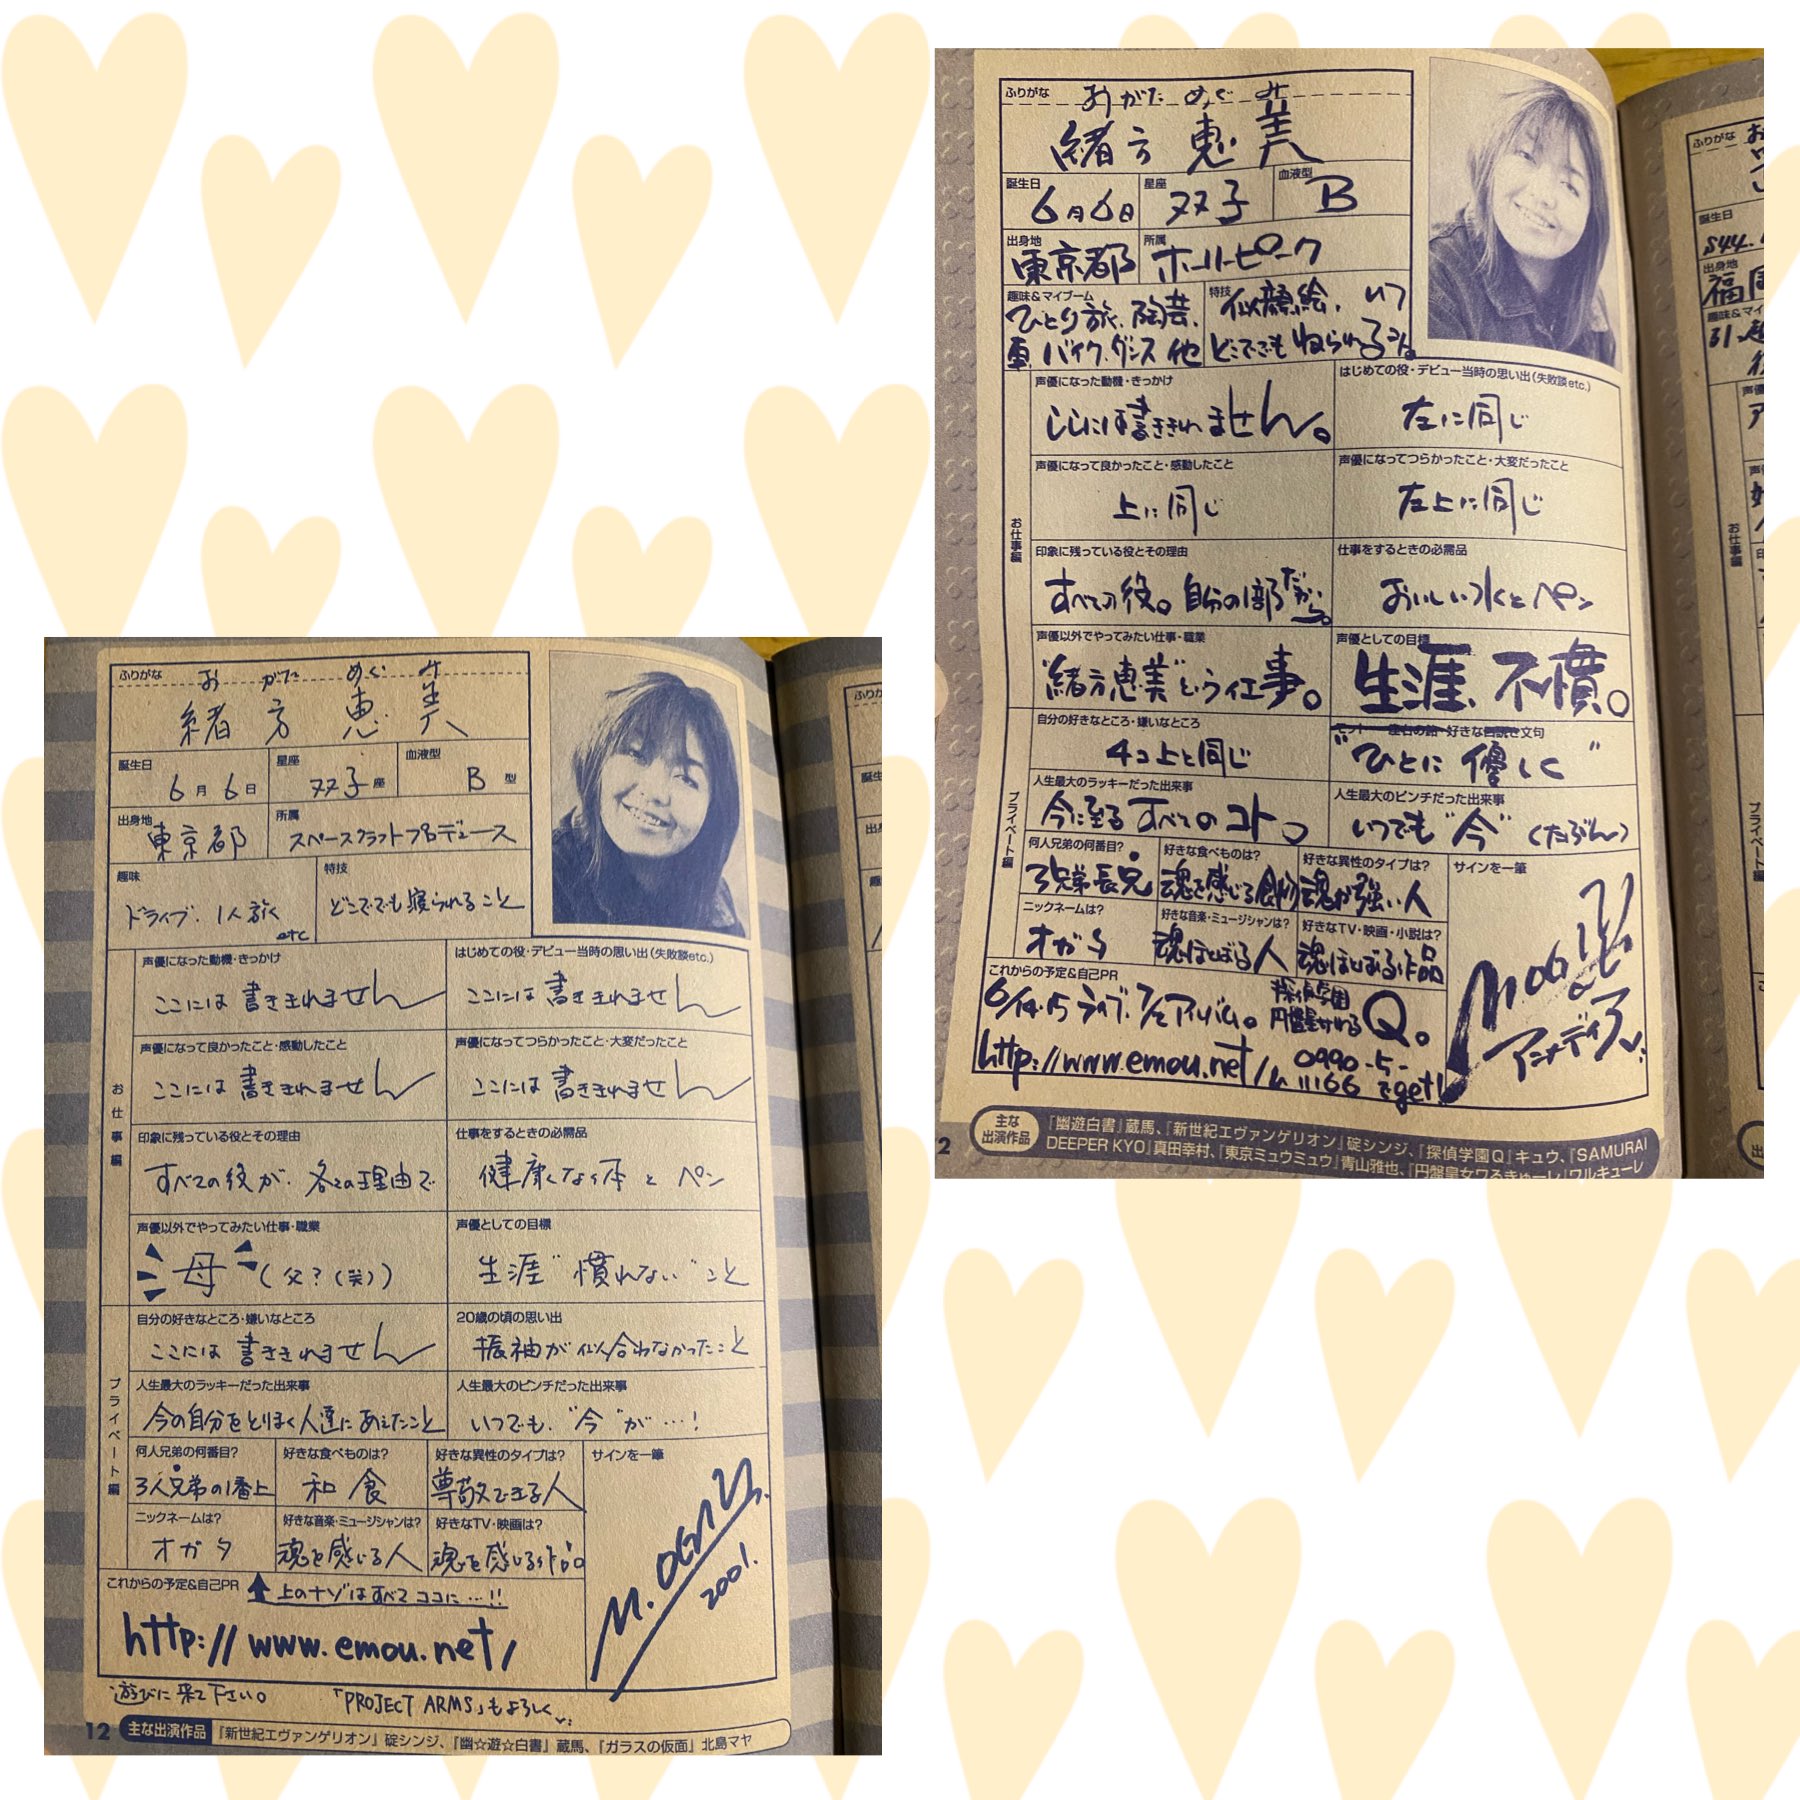 ふりがな おがた めぐみ
緒方 恵美
誕生日 6月6日 星座 双子座 血液型 B型
出身地 東京都 所属 スペースクラフトプロデュース
趣味 特技
ドライブ、1人旅 etc どこででも寝られること
お仕事編
声優になった動機・きっかけ はじめての役・デビュー当時の思い出(失敗談etc.)
ここには書ききれません ここには書ききれません
声優になって良かったこと・感動したこと 声優になってつらかったこと・大変だったこと
ここには書ききれません ここには書ききれません
印象に残っている役とその理由 仕事をするときの必需品
すべての役が、各々の理由で 健康な体とペン
声優以外でやってみたい仕事・職業 声優としての目標
母(父?(笑)) 生涯"慣れない"こと
プライベート編
自分の好きなところ・嫌いなところ 20歳の頃の思い出
ここには書ききれません 振袖が似合わなかったこと
人生最大のラッキーだった出来事 人生最大のピンチだった出来事
今の自分をとりまく人達にあえたこと いつでも、"今"が…!
何人兄弟の何番目? 好きな食べものは? 好きな異性のタイプは? サインを一筆
3人兄弟の1番上 和食 尊敬できる人
ニックネームは? 好きな音楽・ミュージシャンは? 好きなTV・映画は?
オガタ 魂を感じる人 魂を感じる作品
M. OGATA 2001.
これからの予定&自己PR 上のナゾはすべてココに…!!
http://www.emou.net/
遊びに来て下さい。 「PROJECT ARMS」もよろしく
12 主な出演作品 『新世紀エヴァンゲリオン』碇シンジ、『幽☆遊☆白書』蔵馬、『ガラスの仮面』北島マヤ
ふりがな おがた めぐみ
緒方 恵美
誕生日 6月6日 星座 双子 血液型 B
出身地 東京都 所属 ホーリーピーク
趣味&マイブーム 特技
ひとり旅、陶芸、 似顔絵、いつ
車、バイク、ダンス他 どこででもねられるコト。
お仕事編
声優になった動機・きっかけ はじめての役・デビュー当時の思い出(失敗談etc.)
ここには書ききれません。 左に同じ
声優になって良かったこと・感動したこと 声優になってつらかったこと・大変だったこと
上に同じ 左上に同じ
印象に残っている役とその理由 仕事をするときの必需品
すべての役。自分の1部だから。 おいしい水とペン
声優以外でやってみたい仕事・職業 声優としての目標
"緒方恵美"という仕事。 生涯、不慣。
プライベート編
自分の好きなところ・嫌いなところ 好きな 文句
4コ上と同じ "ひとに優しく"
人生最大のラッキーだった出来事 人生最大のピンチだった出来事
今に至るすべてのコト。 いつでも"今"(たぶん)
何人兄弟の何番目? 好きな食べものは? 好きな異性のタイプは? サインを一筆
3兄弟長兄 魂を感じる食物 魂が強い人
ニックネームは? 好きな音楽・ミュージシャンは? 好きなTV・映画・小説は?
オガタ 魂ほとばしる人 魂ほとばしる作品
これからの予定&自己PR
6/14・15ライブ、7/2アルバム。 探偵学園Q。
http://www.emou.net/ 0990-5-
get!
2 主な出演作品 『幽遊白書』蔵馬、『新世紀エヴァンゲリオン』碇シンジ、『探偵学園Q』キュウ、『SAMURAI
DEEPER KYO』真田幸村、『東京ミュウミュウ』青山雅也、『円盤皇女ワるきゅーレ』ワルキューレ
ふりがな
誕生日
S44.
出身地
福